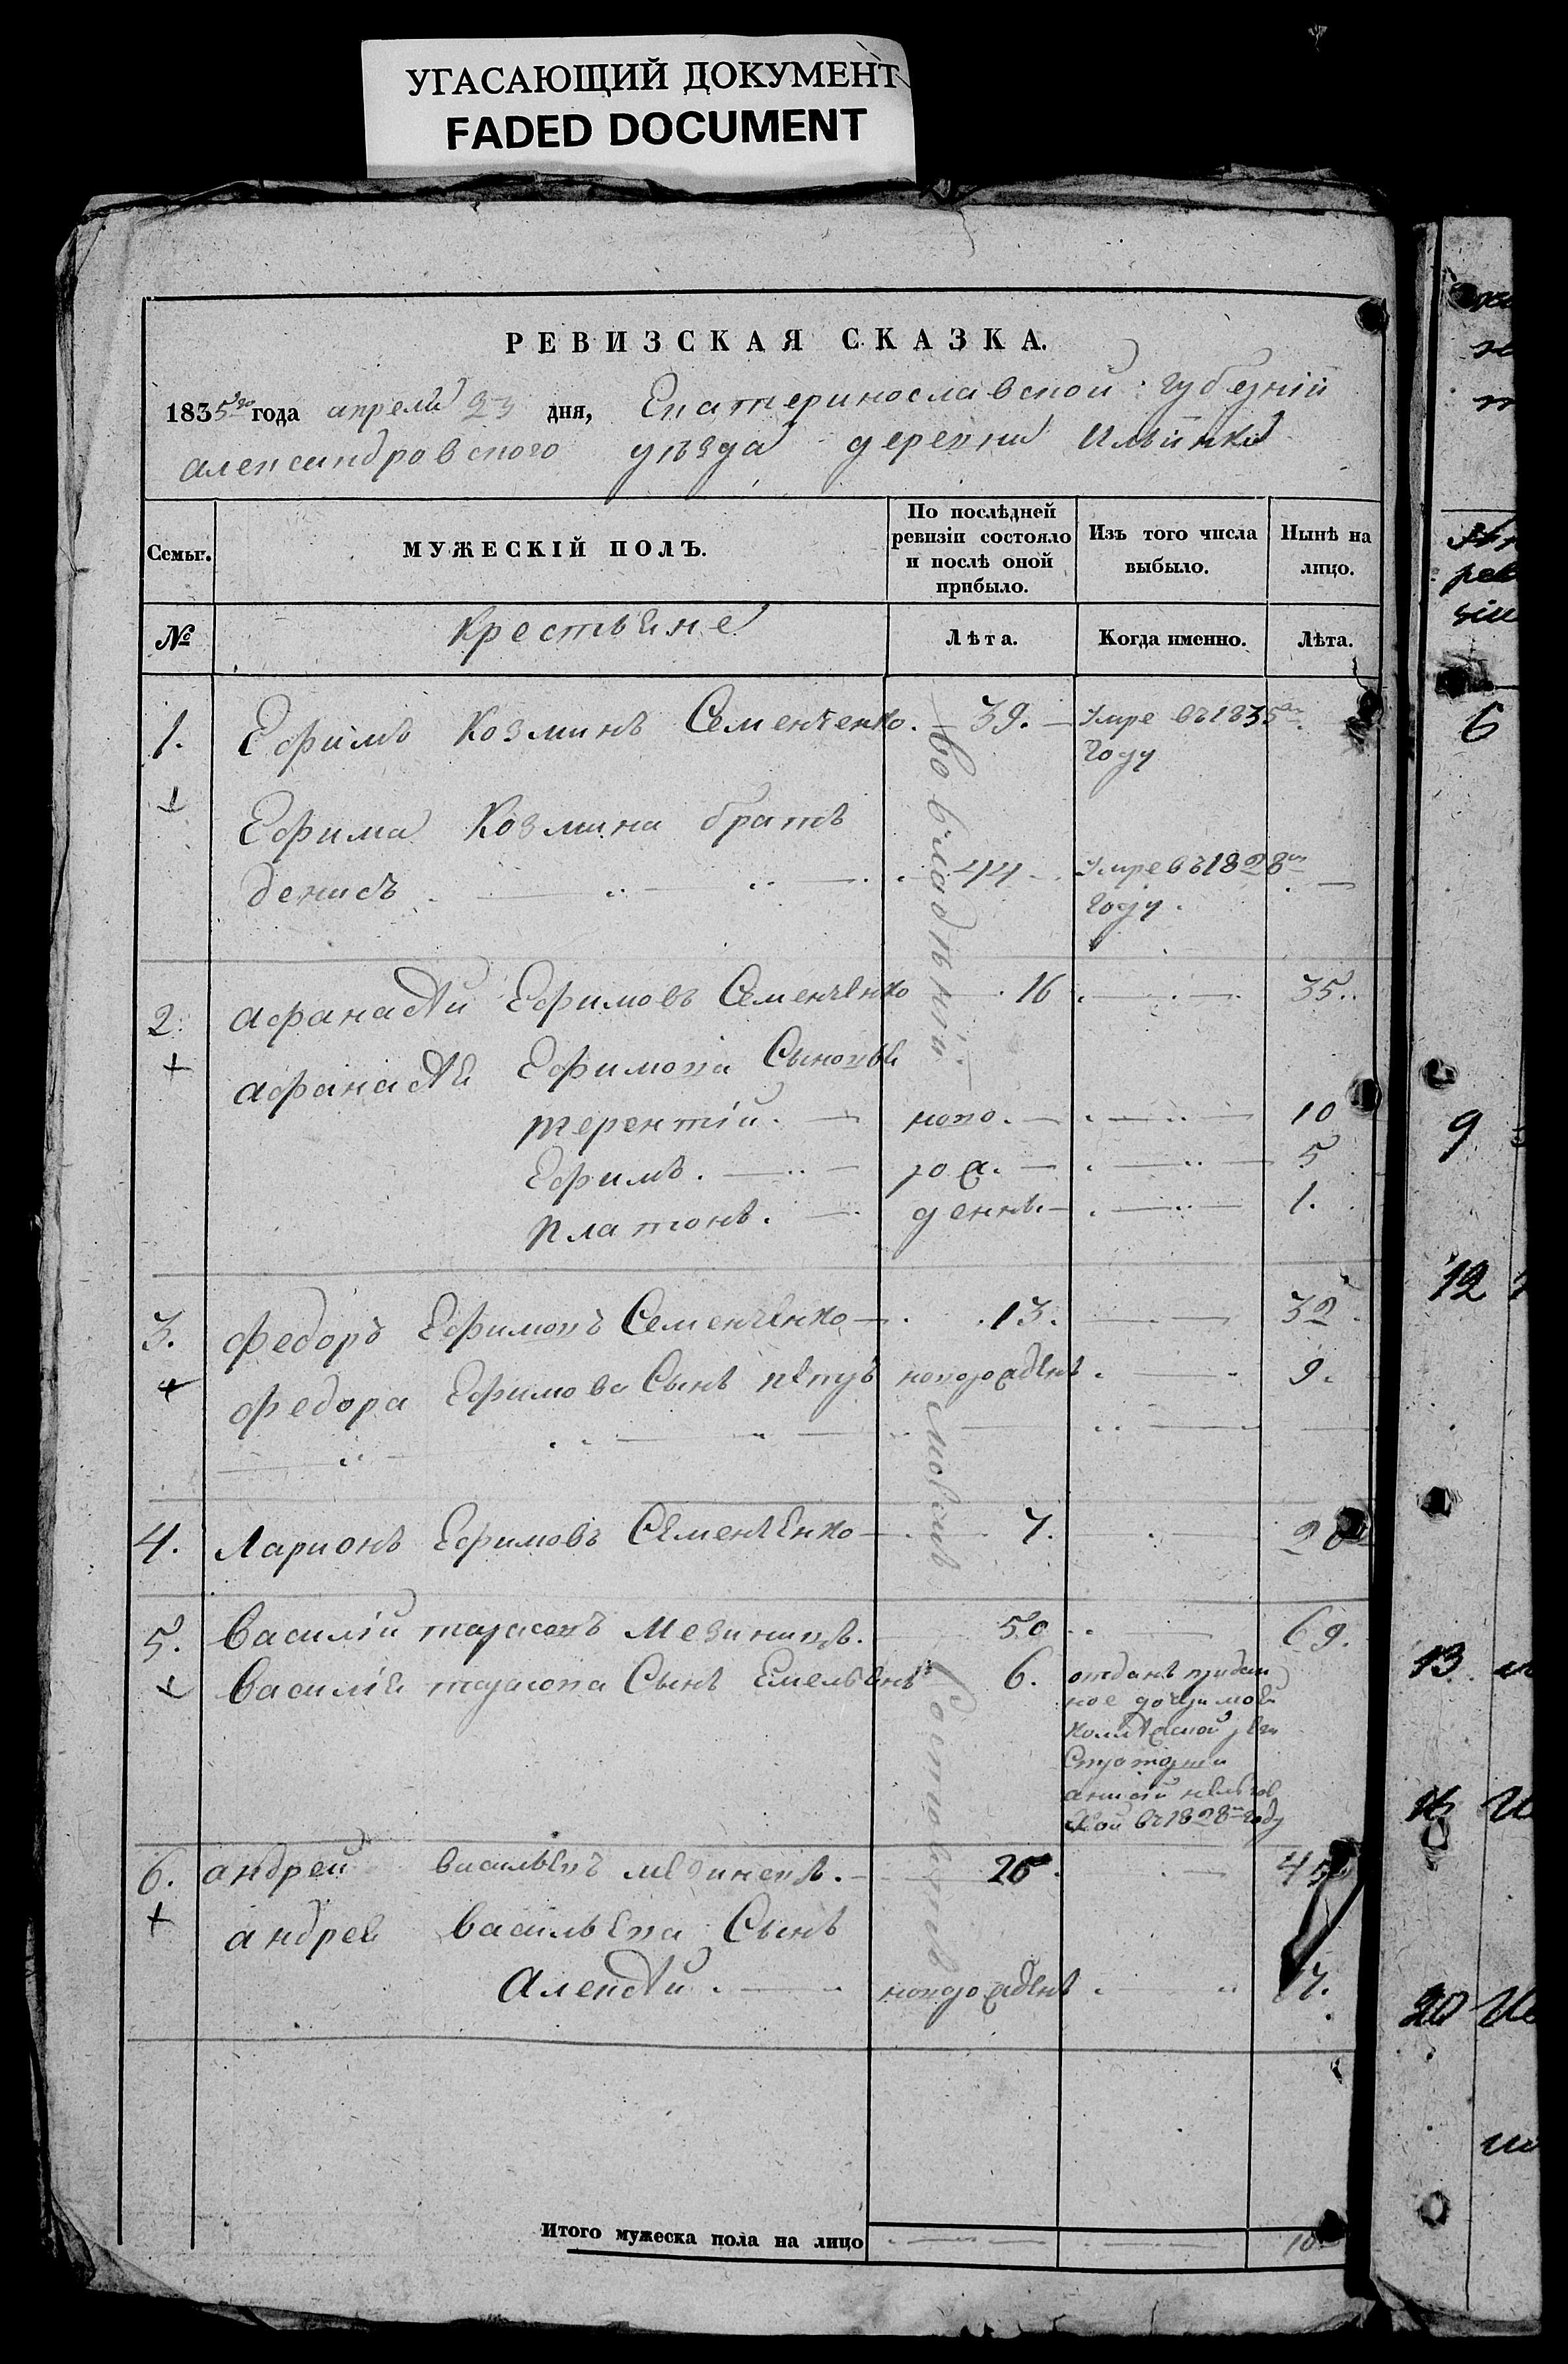 УГАСАЮЩИЙ ДОКУМЕНТ
FADED DOCUMENT
РЕВИЗСКАЯ СКАЗКА.
1835го года апреля 23 дня, Екатеринославской губерніи
александровского уѣзда деревни Ильинки
Семьи. МУЖЕСКІЙ ПОЛЪ. По послѣдней ревизіи состояло и послѣ оной прибыло. Изъ того числа выбыло. Нынѣ на лицо.
№ крестьяне Лѣта. Когда именно. Лѣта.
1. Ефимъ Козминъ Семенченко. 39. Умре въ 1835м
году
Ефима Козмина братъ
денисъ 44 Умре въ 1828м
году.
2. афанасій Ефимовъ Семенченко 16 35.
афанасія Ефимова Сыновья
терентій. ново 10
Ефимъ. рож 5
платонъ. денъ. 1.
3. федоръ Ефимовъ Семенченко 13. 32
федора Ефимова Сынъ новорожденъ 9.
4. Ларионъ Ефимовъ Семенченко 7. 26
5. Василій тарасовъ Мезинивъ. 50 69.
Василія тарасова Сынъ Емельянъ 6. отданъ
въ 1828м году
6. андрей васильевъ 26 45
андрея васильева Сынъ
Алексѣй новорожденъ 17.
во владѣніи
Итого мужеска пола на лицо 10
6
9
12
13
20